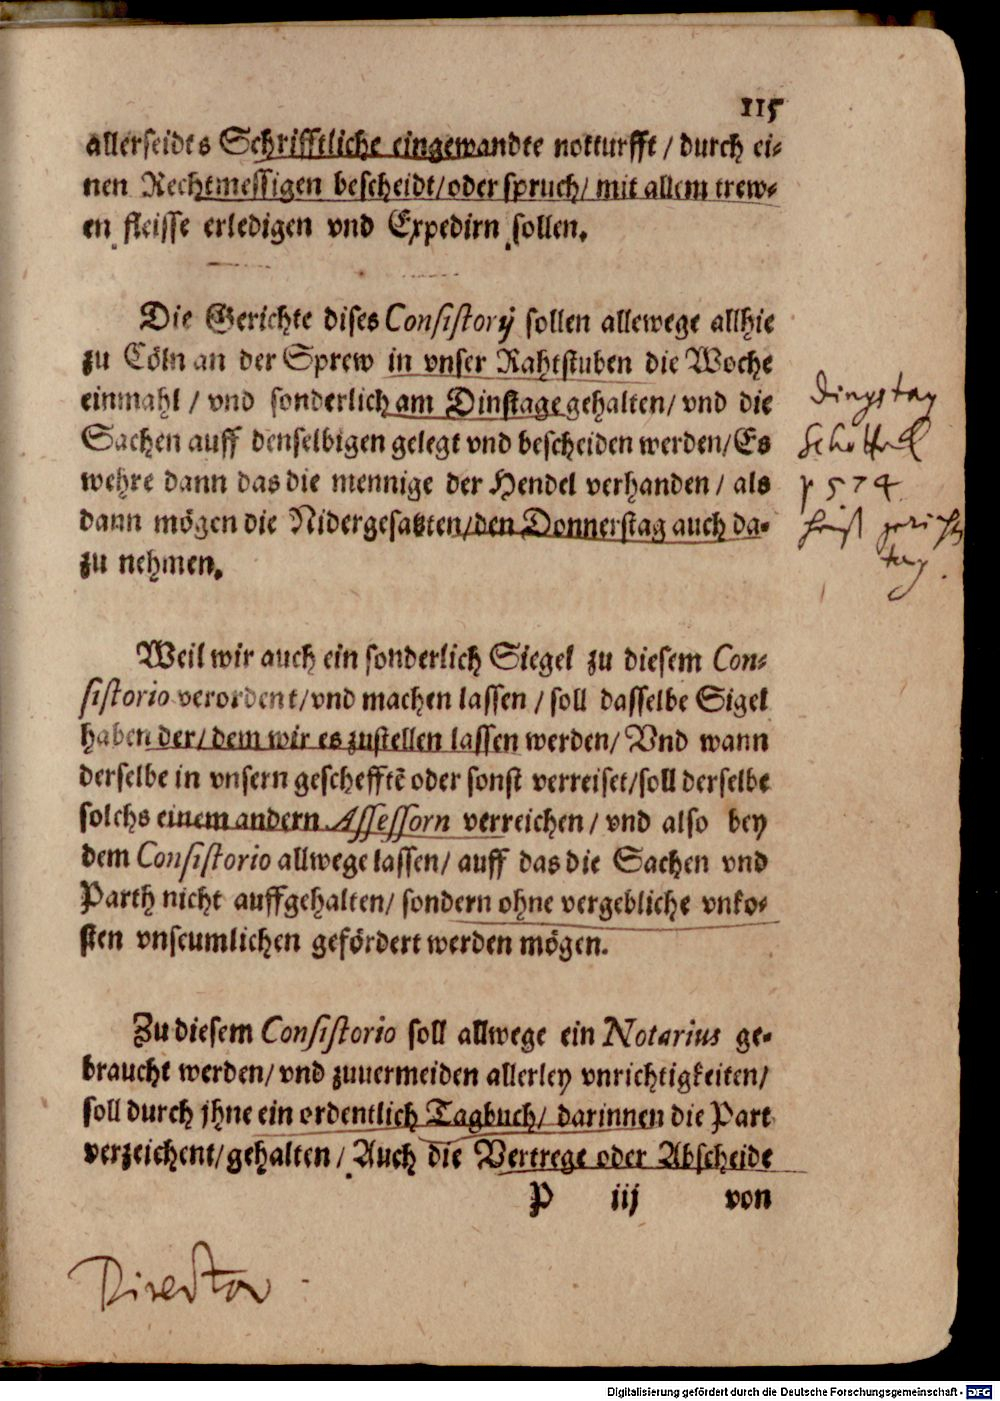 115
allerseidts Schrifftliche eingewandte notturfft / durch ei-
nen Rechtmessigen bescheidt/oder spruch/ mit allem trew-
en fleisse erledigen vnd Expedirn sollen.
Die Gerichte dises Consistorij sollen allewege allhie
zu Cöln an der Sprew in vnser Rahtstuben die Woche
einmahl / vnd sonderlich am Dinstage gehalten/ vnd die
Sachen auff denselbigen gelegt vnd bescheiden werden/Es
wehre dann das die mennige der Hendel verhanden / als
dann mögen die Nidergesatzten/den Donnerstag auch da-
zu nehmen.
Dingstag
Schottel
p 574
heist gerichts
tag.
Weil wir auch ein sonderlich Siegel zu diesem Con-
sistorio verordent/vnd machen lassen / soll dasselbe Sigel
haben der/ dem wir es zustellen lassen werden/ Vnd wann
derselbe in vnsern geschefftẽ oder sonst verreiset/soll derselbe
solchs einem andern Assessorn verreichen / vnd also bey
dem Consistorio allwege lassen/ auff das die Sachen vnd
Parth nicht auffgehalten/ sondern ohne vergebliche vnko-
sten vnseumlichen gefördert werden mögen.
Zu diesem Consistorio soll allwege ein Notarius ge-
braucht werden/ vnd zuuermeiden allerley vnrichtigkeiten/
soll durch jhne ein ordentlich Tagbuch/ darinnen die Part
verzeichent/gehalten / Auch die Vertrege oder Abscheide
P iij von
Director
Digitalisierung gefördert durch die Deutsche Forschungsgemeinschaft - DFG